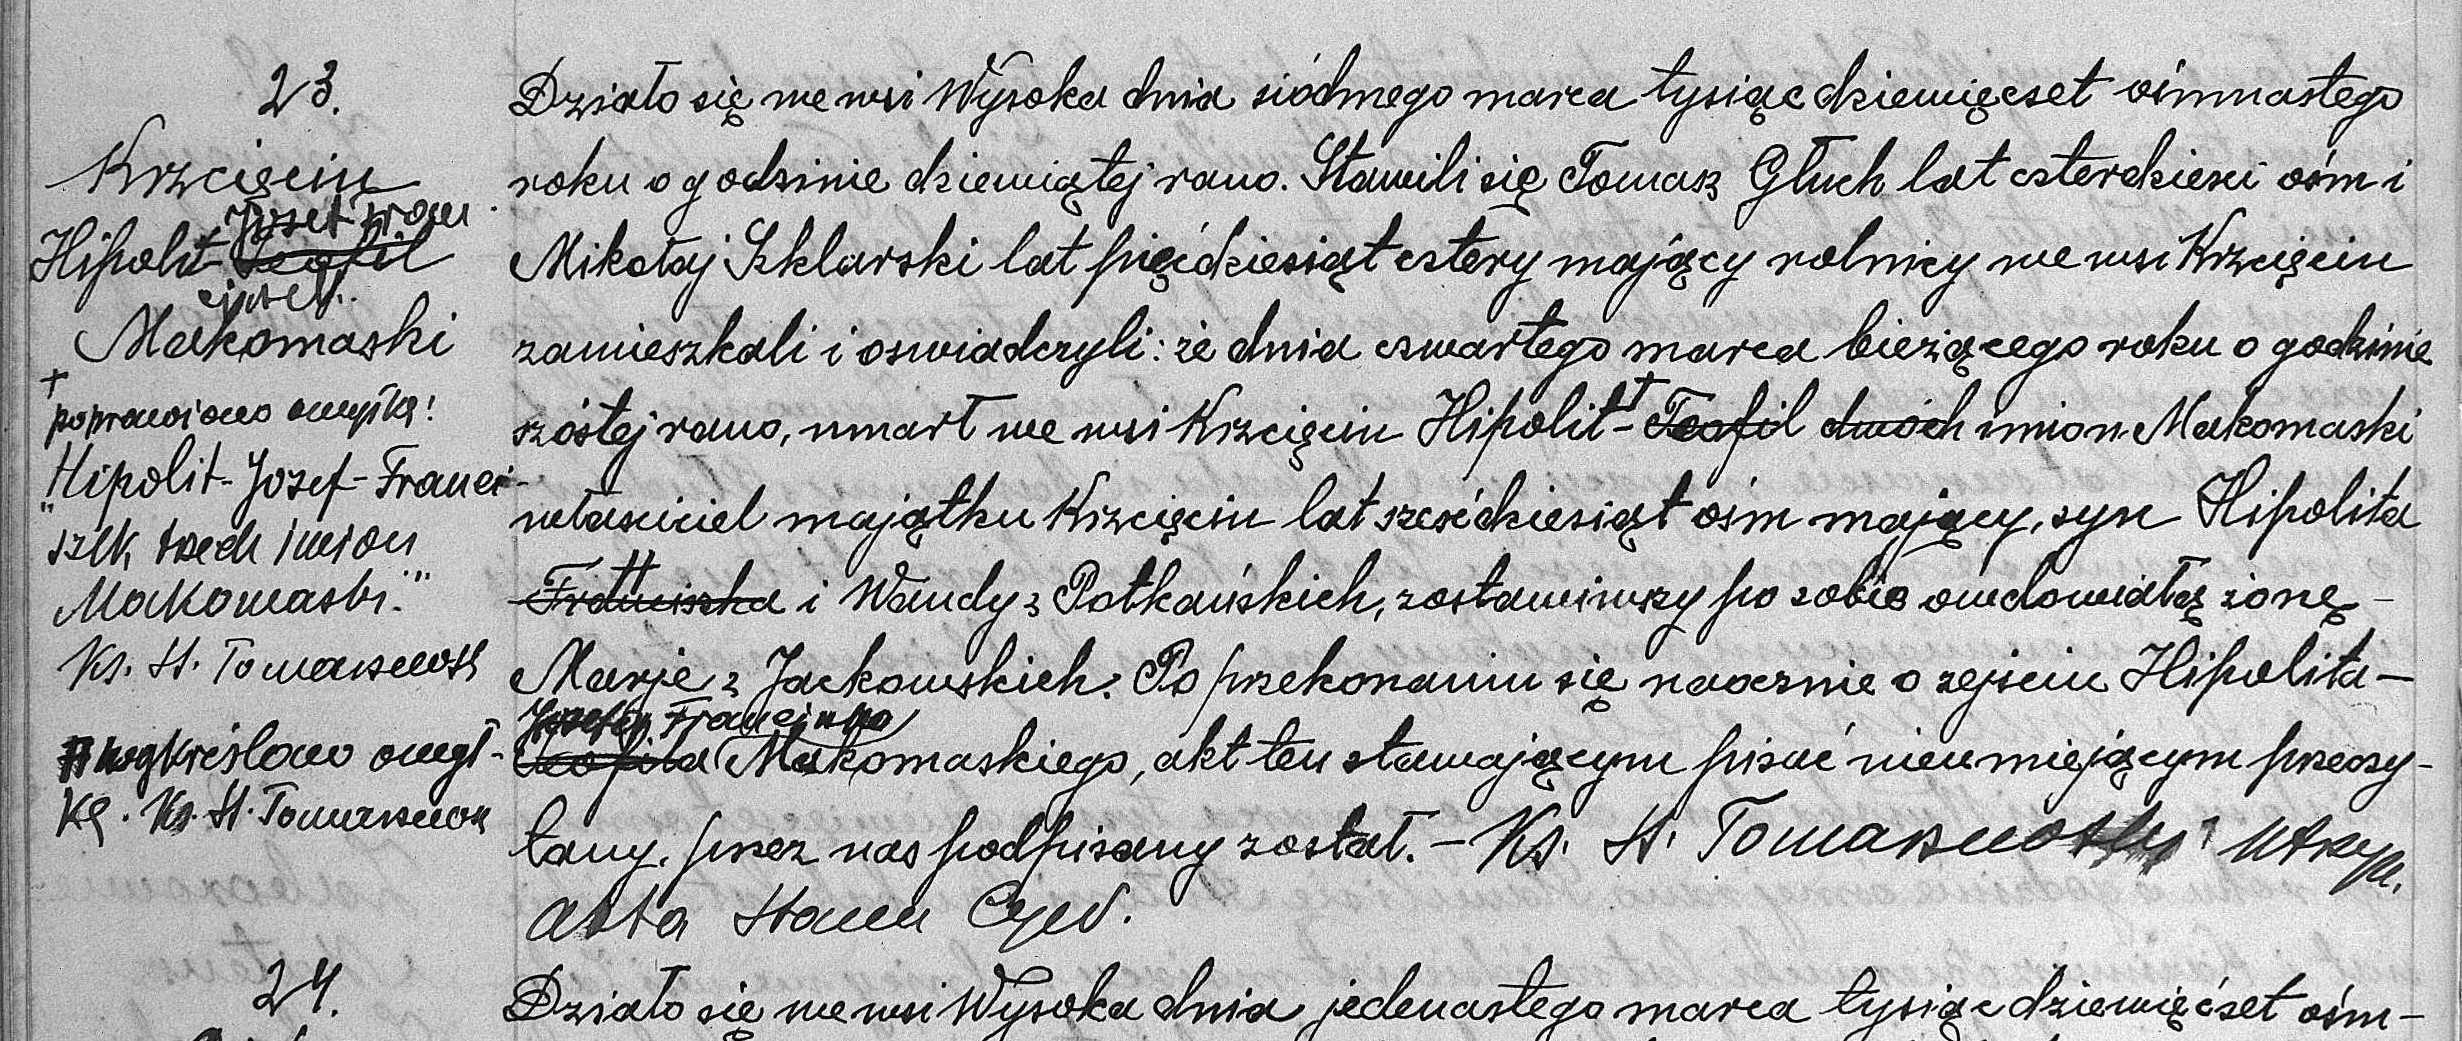 23.
Krzcięcin
Józef Fran
Hipolit - Teofil
ciszek
Makomaski
†
poprawiono omyłkę!
"Hipolit - Jozef - Franci-
szek trzech imion
Makomaski."
Ks. St. Tomaszewsk
†† wykreślono omył-
kę. Ks. St. Tomaszewsk
Działo się we wsi Wysoka dnia siódmego marca tysiąc dziewięcset ośmnastego
roku o godzinie dziewiątej rano. Stawili się Tomasz Głuch lat czterdzieści ośm i
Mikołaj Szklarski lat pięćdziesiąt cztery mający rolnicy we wsi Krzcięcin
zamieszkali i oswiadczyli: że dnia czwartego marca bieżącego roku o godzinie
szóstej rano, umarł we wsi Krzcięcin Hipolit - † Teofil dwóch imion Makomaski
własciciel majątku Krzcięcin lat sześćdziesiąt ośm mający, syn Hipolita
†† Franciszka i Wandy z Potkańskich, zostawiwszy po sobie owdowiałą żonę -
Marję z Jackowskich. Po przekonaniu się naocznie o zejściu Hipolita -
Jozefa Franciszka
Teofila Makomaskiego, akt ten stawającym pisać nieumiejącym przeczy-
tany, przez nas podpisany został. - Ks. St. Tomaszewski Utrzym.
Akta Stanu Cyw.
24.
Działo się we wsi Wysoka dnia jedenastego marca tysiąc dziewięćset ośm-